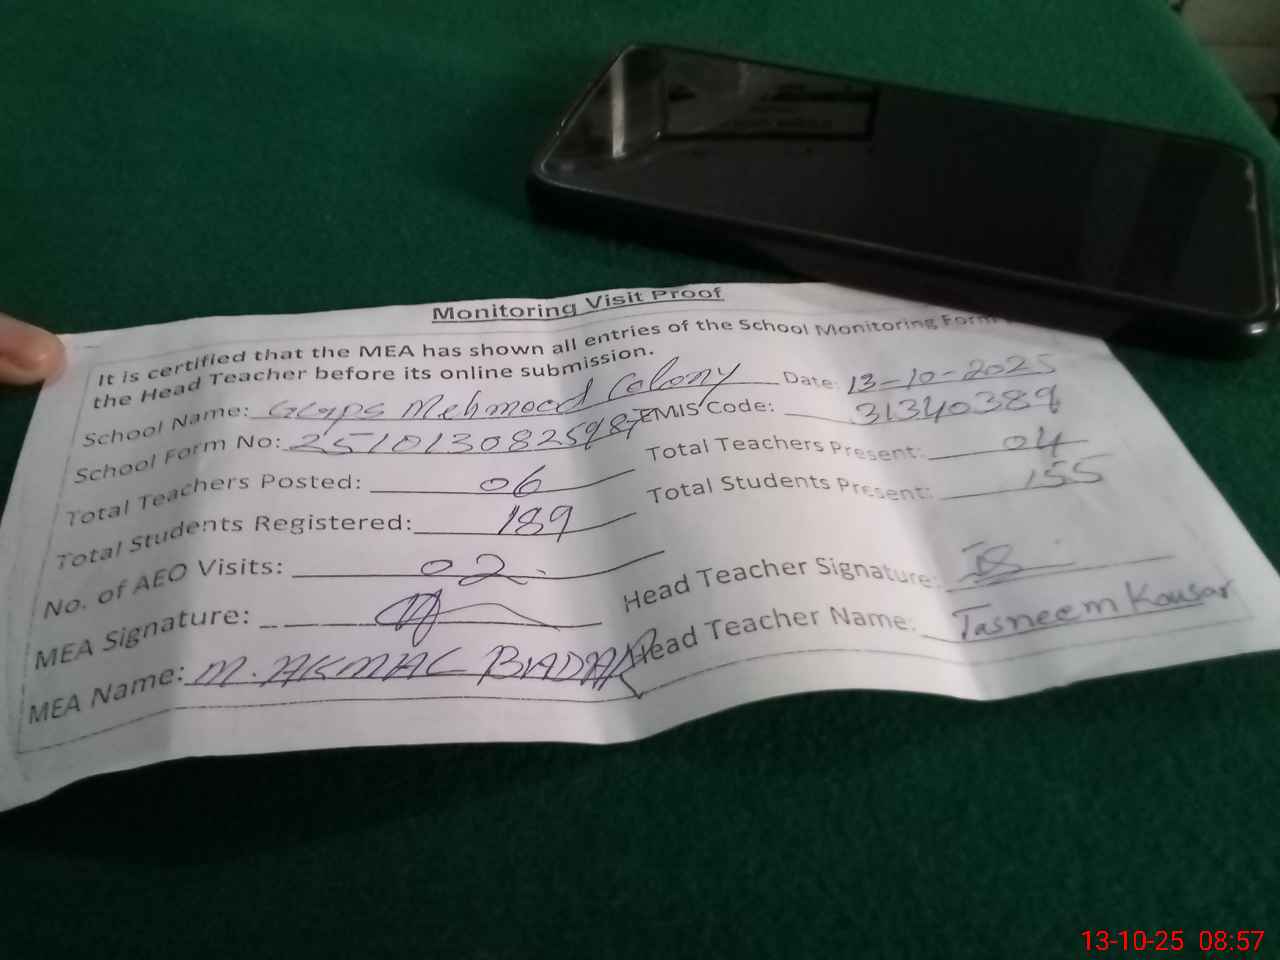 Monitoring Visit Proof
It is certified that the MEA has shown all entries of the School Monitoring Form
the Head Teacher before its online submission.
School Name: GGPS Mehmood Colony Date: 13-10-2025
School Form No: 2510130825987 EMIS Code: 31340389
Total Teachers Posted: 06 Total Teachers Present: 04
Total Students Registered: 189 Total Students Present: 155
No. of AEO Visits: 02
MEA Signature: Head Teacher Signature:
MEA Name: M. AKMAL Head Teacher Name: Tasneem Kousar
13-10-25 08:57